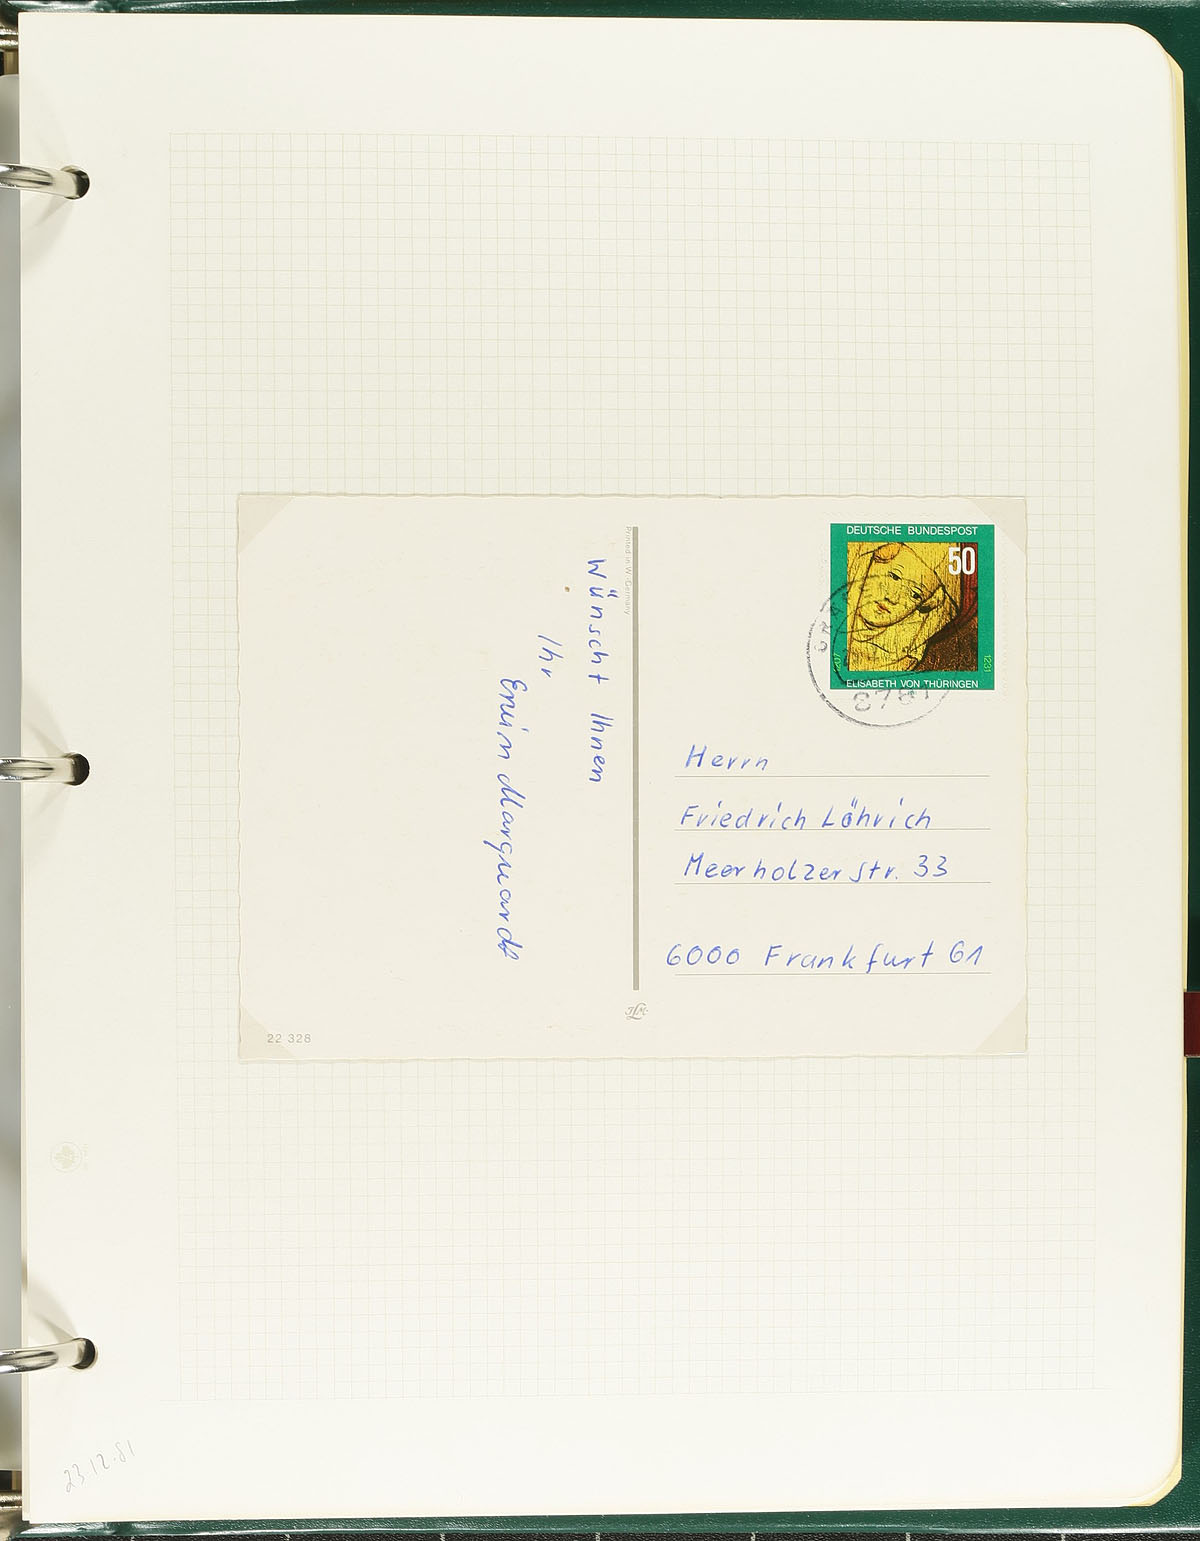 DEUTSCHE BUNDESPOST
50
1231
ELISABETH VON THÜRINGEN
Printed in W. Germany
Wünscht Ihnen
Ihr
Erwin Marquardt
Herrn
Friedrich Löhrich
Meerholzer str. 33
6000 Frankfurt 61
22 328
23.12.81